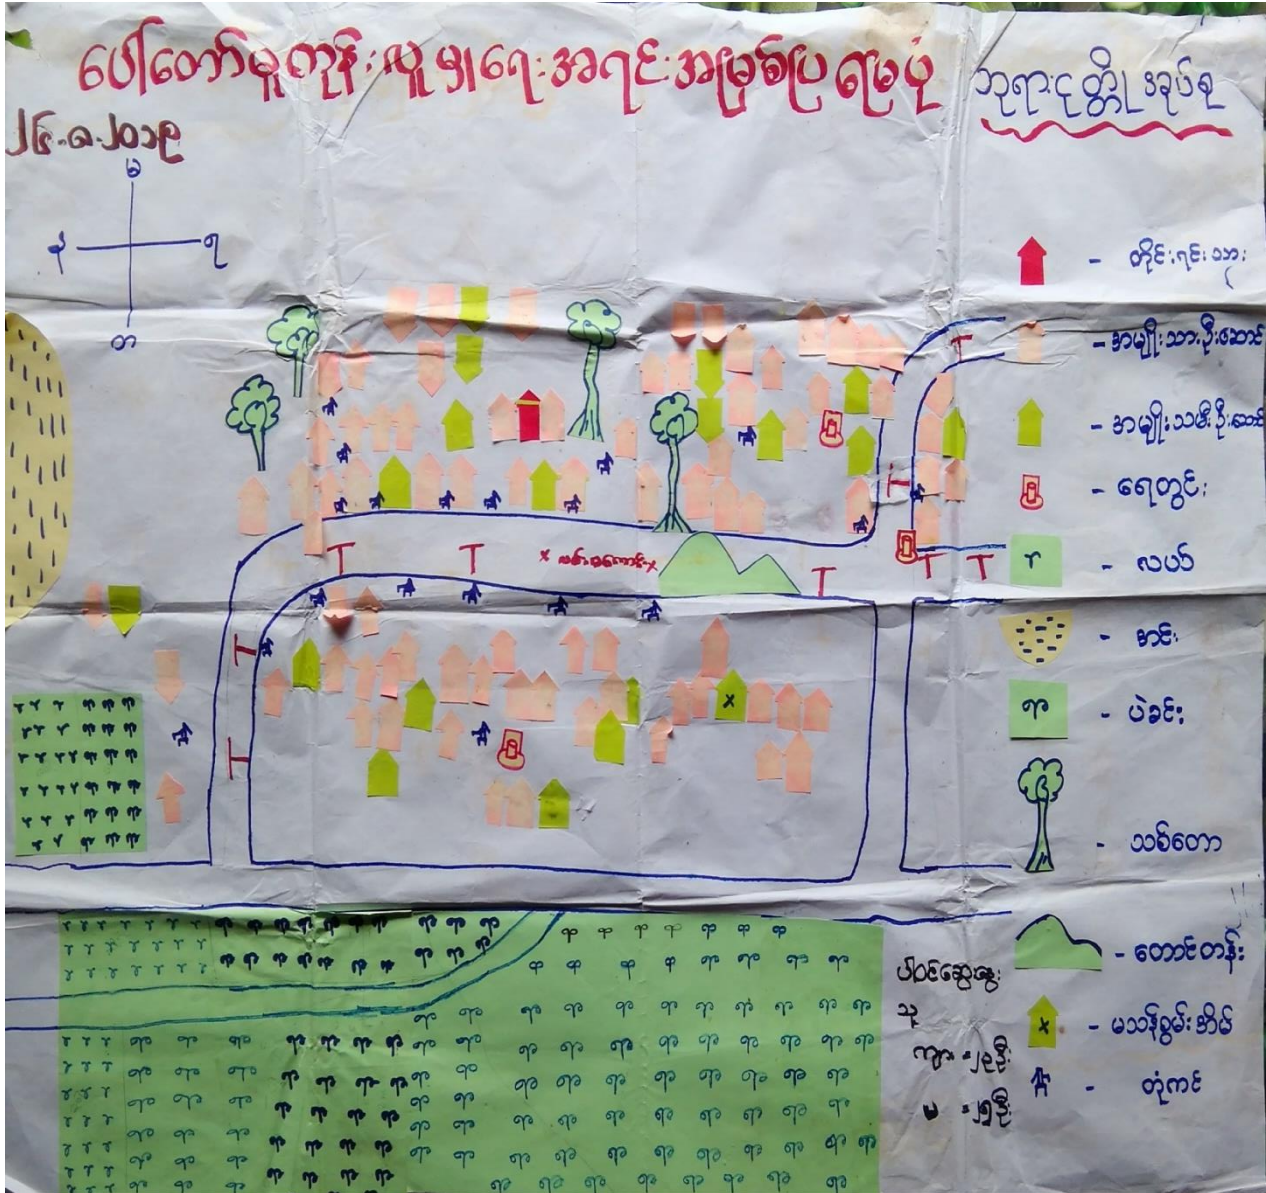 ပေါ်တော်မူကုန်းလူမှုရေးအရင်းအမြစ်ပြမြေပုံ
ဘုရားငုတ္တိုအုပ်စု
၂၆-၈-၂၀၁၉
မ
န
ရ
တ
- တိုင်းရင်းသား
- အမျိုးသားဦးဆောင်
- အမျိုးသမီးဦးဆောင်
- ရေတွင်း
- လယ်
- အင်း
- ပဲခင်း
- သစ်တော
- တောင်တန်း
- မသန်စွမ်းအိမ်
- တုံကင်
ပါဝင်ဆွေးနွေး
သူ
ကျား = ၂၉ဦး
မ = ၂၅ဦး